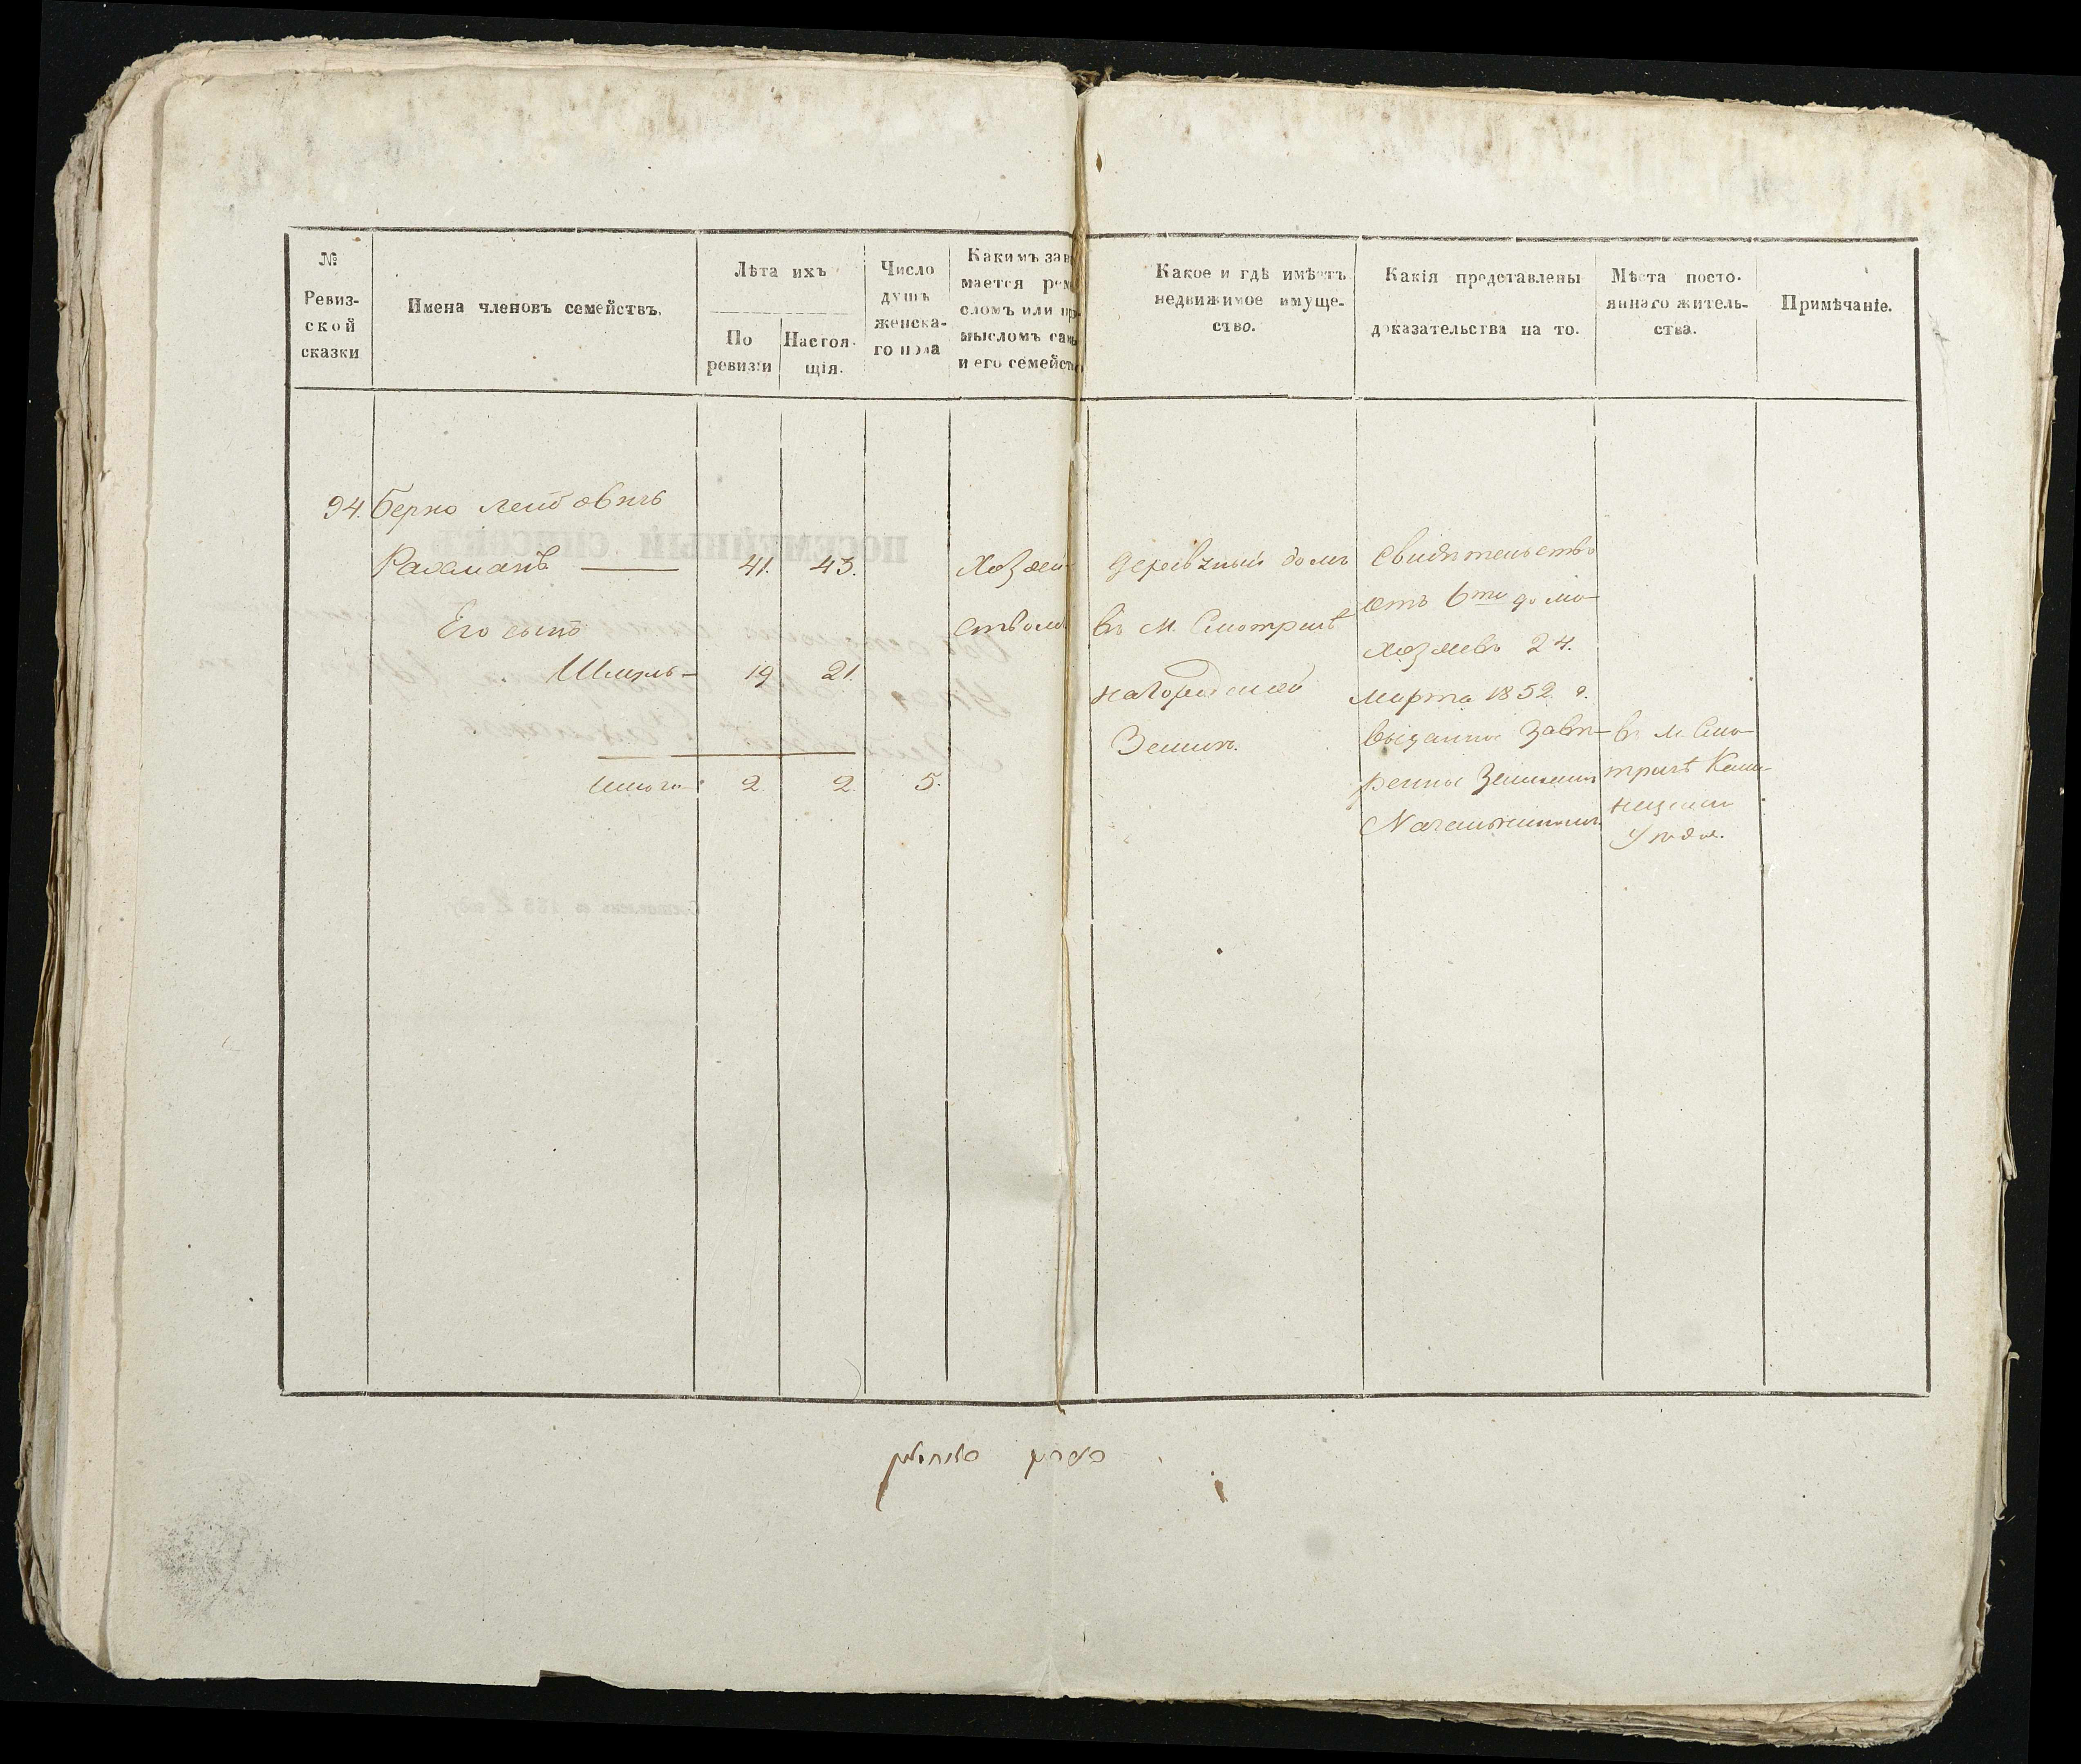 №
Ревиз-
ской
сказки
Имена членовъ семействъ.
Лѣта ихъ
По
ревизіи
Настоя-
щія.
Число
душъ
женска-
го пола
Какимъ зан
мается рем
сломъ или пр
мысломъ самъ
и его семейств
Какое и гдѣ имѣетъ
недвижимое имуще-
ство.
Какія представлены
доказательства на то.
Мѣста посто-
яннаго житель-
ства.
Примѣчаніе.
94. Берко Лейбовичъ
Рахманъ — 41. 43.
Его сынъ
Шмуль — 19 21.
Итого 2. 2. 5.
Хозяй-
ствомъ
Деревяный домъ
въ м. Смотричѣ
на Городской
Землѣ.
Свидѣтельство
отъ 6ти домо-
хозяевъ 24.
Марта 1852 г.
выданное Завѣ-
ренное
въ м. Смо-
тричѣ Каме-
нецкаго
Уѣзда.
ПОСЕМЕЙНЫЙ СПИСОКЪ